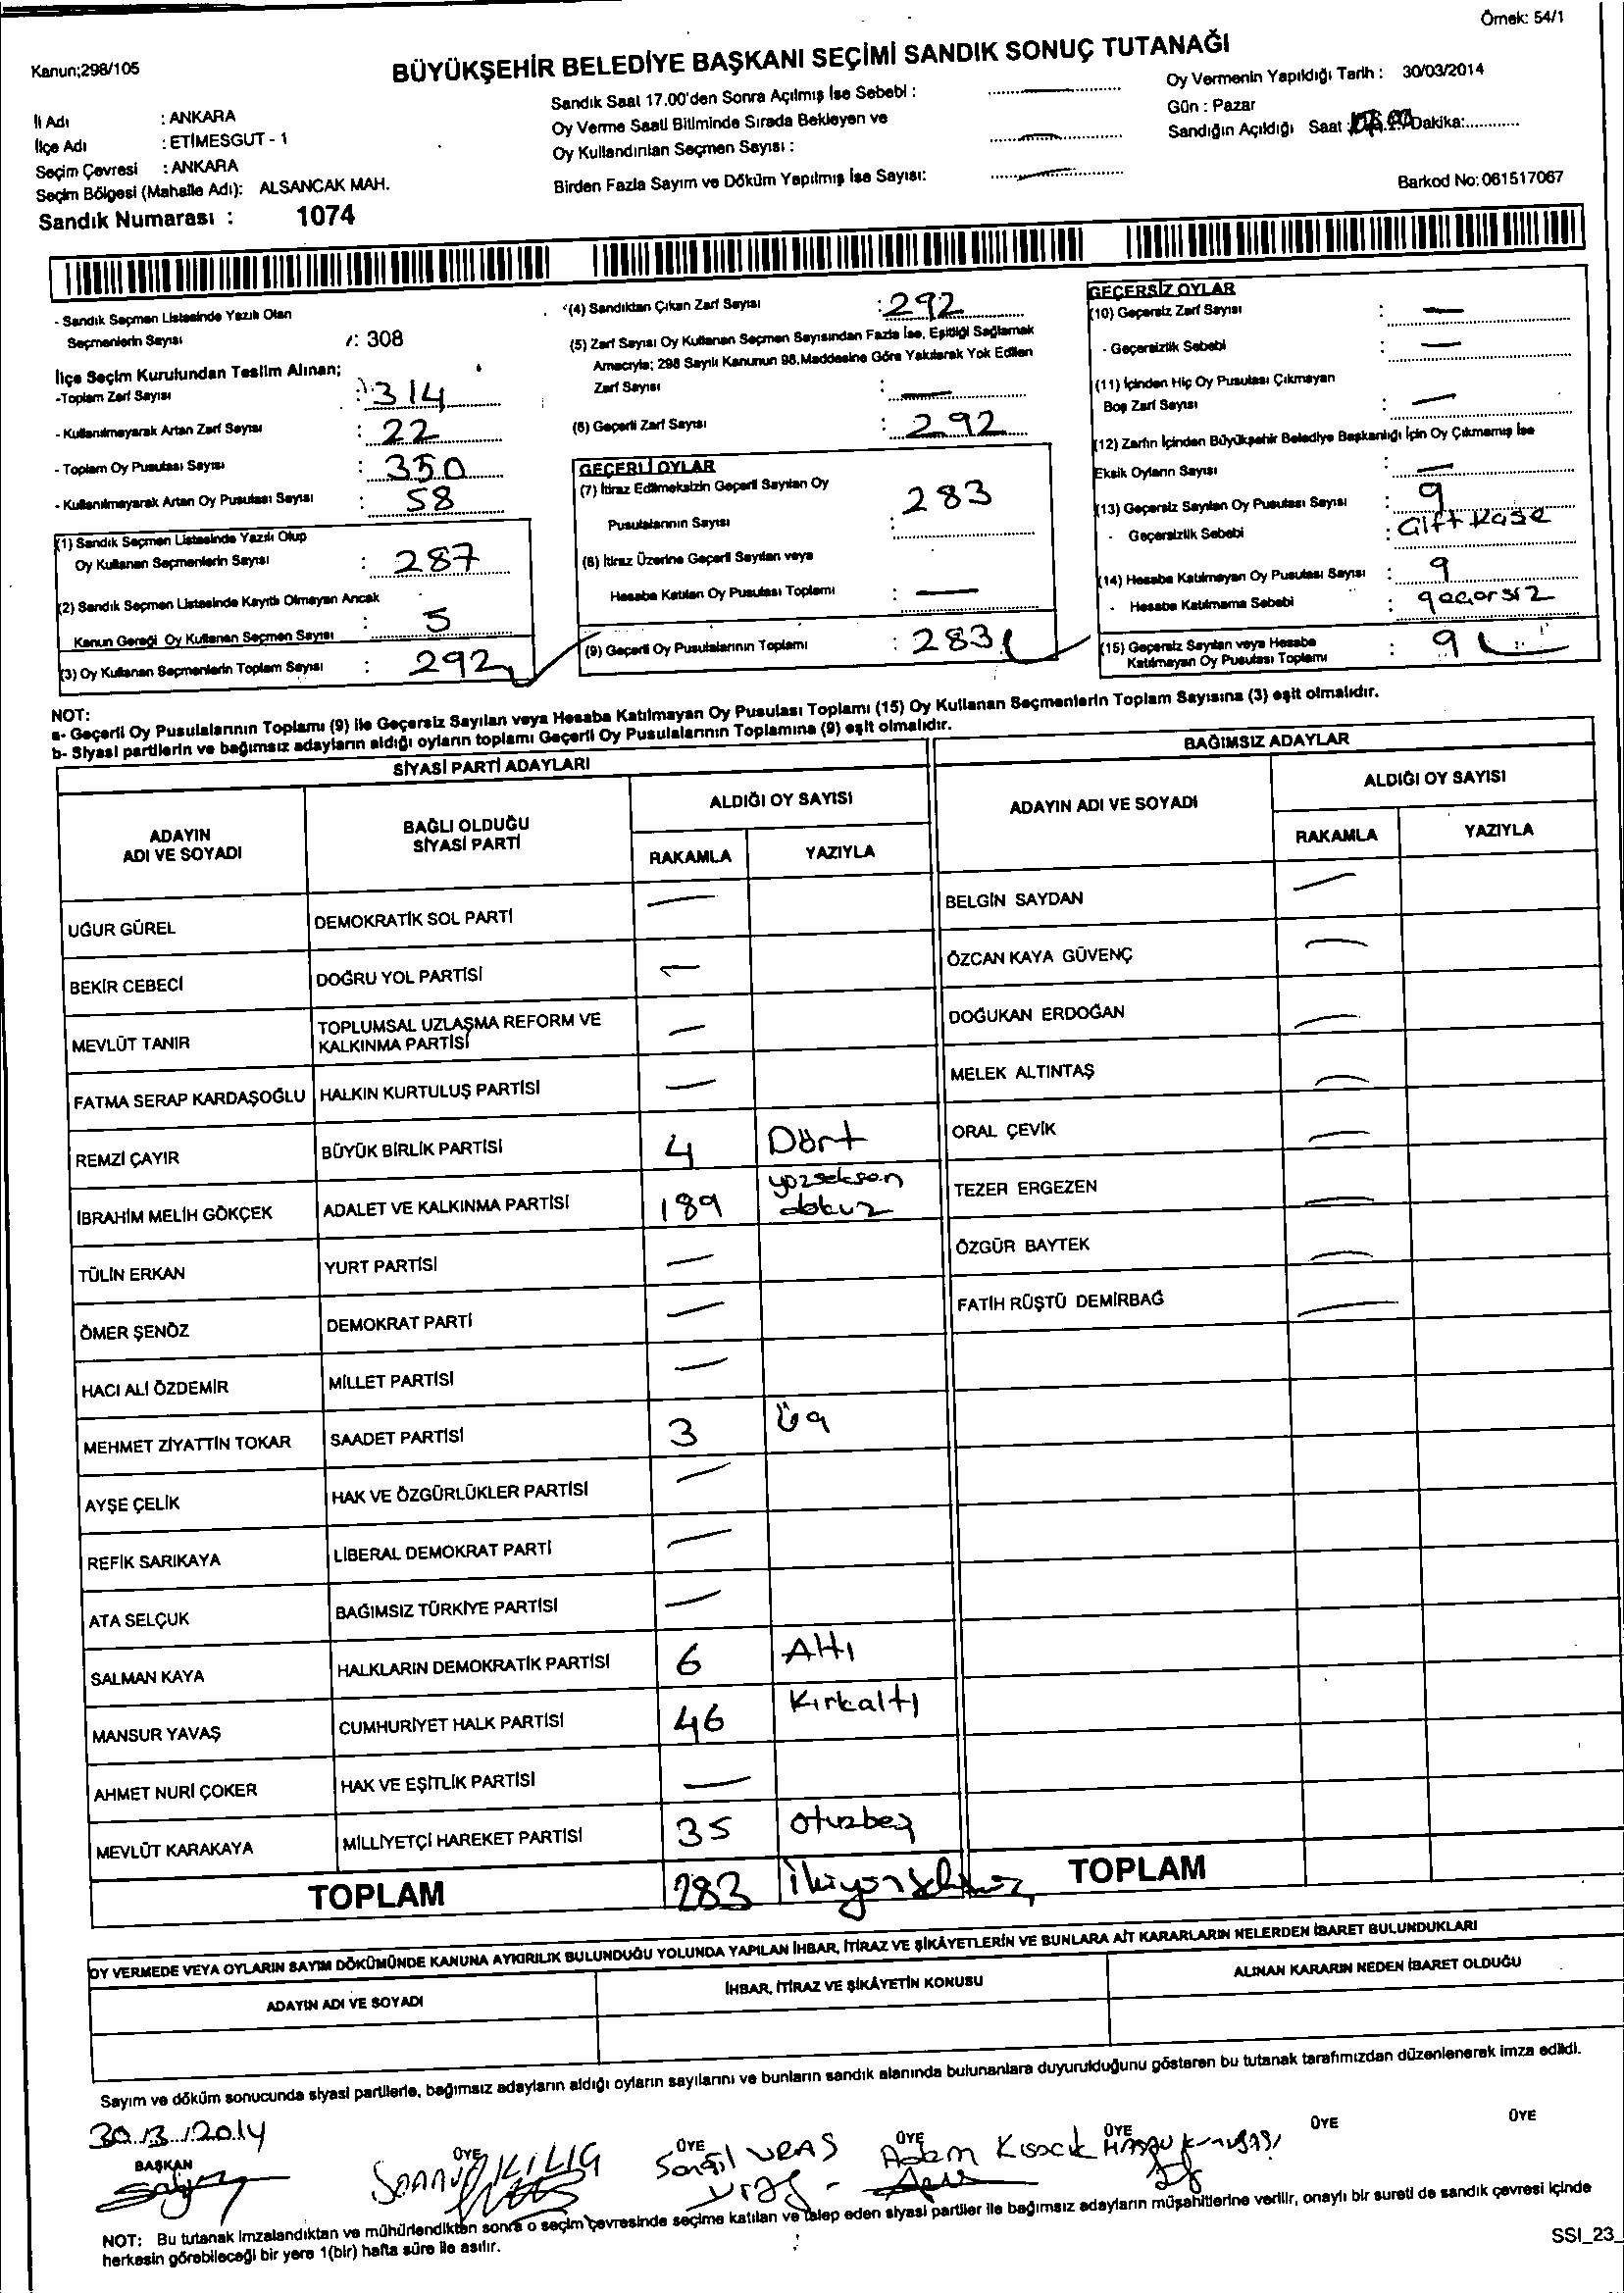 Örnek: 54/1
Kanun;298/105
BÜYÜKŞEHİR BELEDİYE BAŞKANI SEÇİMİ SANDIK SONUÇ TUTANAĞI
İl Adı : ANKARA
İlçe Adı : ETİMESGUT - 1
Seçim Çevresi : ANKARA
Seçim Bölgesi (Mahalle Adı): ALSANCAK MAH.
Sandık Numarası : 1074
Sandık Saat 17.00'den Sonra Açılmış İse Sebebi :
Oy Verme Saati Bitiminde Sırada Bekleyen ve
Oy Kullandırılan Seçmen Sayısı :
Birden Fazla Sayım ve Döküm Yapılmış İse Sayısı:
Oy Vermenin Yapıldığı Tarih : 30/03/2014
Gün : Pazar
Sandığın Açıldığı Saat : Dakika:
Barkod No: 061517067
- Sandık Seçmen Listesinde Yazılı Olan
Seçmenlerin Sayısı : 308
İlçe Seçim Kurulundan Teslim Alınan;
-Toplam Zarf Sayısı : 314
- Kullanılmayarak Artan Zarf Sayısı : 22
- Toplam Oy Pusulası Sayısı : 350
- Kullanılmayarak Artan Oy Pusulası Sayısı : 58
(1) Sandık Seçmen Listesinde Yazılı Olup
Oy Kullanan Seçmenlerin Sayısı : 287
(2) Sandık Seçmen Listesinde Kayıtlı Olmayan Ancak
Kanun Gereği Oy Kullanan Seçmen Sayısı : 5
(3) Oy Kullanan Seçmenlerin Toplam Sayısı : 292
(4) Sandıktan Çıkan Zarf Sayısı : 292
(5) Zarf Sayısı Oy Kullanan Seçmen Sayısından Fazla İse, Eşitliği Sağlamak
Amacıyla; 298 Sayılı Kanunun 98.Maddesine Göre Yakılarak Yok Edilen
Zarf Sayısı : —
(6) Geçerli Zarf Sayısı : 292
GEÇERLİ OYLAR
(7) İtiraz Edilmeksizin Geçerli Sayılan Oy
Pusulalarının Sayısı : 283
(8) İtiraz Üzerine Geçerli Sayılan veya
Hesaba Katılan Oy Pusulası Toplamı : —
(9) Geçerli Oy Pusulalarının Toplamı : 283
GEÇERSİZ OYLAR
(10) Geçersiz Zarf Sayısı : —
- Geçersizlik Sebebi : —
(11) İçinden Hiç Oy Pusulası Çıkmayan
Boş Zarf Sayısı : —
(12) Zarfın İçinden Büyükşehir Belediye Başkanlığı İçin Oy Çıkmamış İse
Eksik Oyların Sayısı : —
(13) Geçersiz Sayılan Oy Pusulası Sayısı : 9
- Geçersizlik Sebebi : Çift Kaşe
(14) Hesaba Katılmayan Oy Pusulası Sayısı : 9
- Hesaba Katılmama Sebebi : geçersiz
(15) Geçersiz Sayılan veya Hesaba
Katılmayan Oy Pusulası Toplamı : 9
NOT:
a- Geçerli Oy Pusulalarının Toplamı (9) ile Geçersiz Sayılan veya Hesaba Katılmayan Oy Pusulası Toplamı (15) Oy Kullanan Seçmenlerin Toplam Sayısına (3) eşit olmalıdır.
b- Siyasi partilerin ve bağımsız adayların aldığı oyların toplamı Geçerli Oy Pusulalarının Toplamına (9) eşit olmalıdır.
SİYASİ PARTİ ADAYLARI
ADAYIN ADI VE SOYADI BAĞLI OLDUĞU SİYASİ PARTİ ALDIĞI OY SAYISI
RAKAMLA YAZIYLA
UĞUR GÜREL DEMOKRATİK SOL PARTİ —
BEKİR CEBECİ DOĞRU YOL PARTİSİ —
MEVLÜT TANIR TOPLUMSAL UZLAŞMA REFORM VE KALKINMA PARTİSİ —
FATMA SERAP KARDAŞOĞLU HALKIN KURTULUŞ PARTİSİ —
REMZİ ÇAYIR BÜYÜK BİRLİK PARTİSİ 4 Dört
İBRAHİM MELİH GÖKÇEK ADALET VE KALKINMA PARTİSİ 189 yüzseksen dokuz
TÜLİN ERKAN YURT PARTİSİ —
ÖMER ŞENÖZ DEMOKRAT PARTİ —
HACI ALİ ÖZDEMİR MİLLET PARTİSİ —
MEHMET ZİYATTİN TOKAR SAADET PARTİSİ 3 Üç
AYŞE ÇELİK HAK VE ÖZGÜRLÜKLER PARTİSİ —
REFİK SARIKAYA LİBERAL DEMOKRAT PARTİ —
ATA SELÇUK BAĞIMSIZ TÜRKİYE PARTİSİ —
SALMAN KAYA HALKLARIN DEMOKRATİK PARTİSİ 6 Altı
MANSUR YAVAŞ CUMHURİYET HALK PARTİSİ 46 Kırkaltı
AHMET NURİ ÇOKER HAK VE EŞİTLİK PARTİSİ —
MEVLÜT KARAKAYA MİLLİYETÇİ HAREKET PARTİSİ 35 otuzbeş
TOPLAM 283
BAĞIMSIZ ADAYLAR
ADAYIN ADI VE SOYADI ALDIĞI OY SAYISI
RAKAMLA YAZIYLA
BELGİN SAYDAN —
ÖZCAN KAYA GÜVENÇ —
DOĞUKAN ERDOĞAN —
MELEK ALTINTAŞ —
ORAL ÇEVİK —
TEZER ERGEZEN —
ÖZGÜR BAYTEK —
FATİH RÜŞTÜ DEMİRBAĞ —
TOPLAM
OY VERMEDE VEYA OYLARIN SAYIM DÖKÜMÜNDE KANUNA AYKIRILIK BULUNDUĞU YOLUNDA YAPILAN İHBAR, İTİRAZ VE ŞİKÂYETLERİN VE BUNLARA AİT KARARLARIN NELERDEN İBARET BULUNDUKLARI
ADAYIN ADI VE SOYADI İHBAR, İTİRAZ VE ŞİKÂYETİN KONUSU ALINAN KARARIN NEDEN İBARET OLDUĞU
Sayım ve döküm sonucunda siyasi partilerle, bağımsız adayların aldığı oyların sayılarını ve bunların sandık alanında bulunanlara duyurulduğunu gösteren bu tutanak tarafımızdan düzenlenerek imza edildi.
30/3/2014
BAŞKAN ÜYE ÜYE ÜYE ÜYE ÜYE ÜYE
KILIÇ VRAS Adem Kısacık
NOT: Bu tutanak imzalandıktan ve mühürlendikten sonra o seçim çevresinde seçime katılan ve talep eden siyasi partiler ile bağımsız adayların müşahitlerine verilir, onaylı bir sureti de sandık çevresi içinde
herkesin görebileceği bir yere 1(bir) hafta süre ile asılır.
SSI_23_